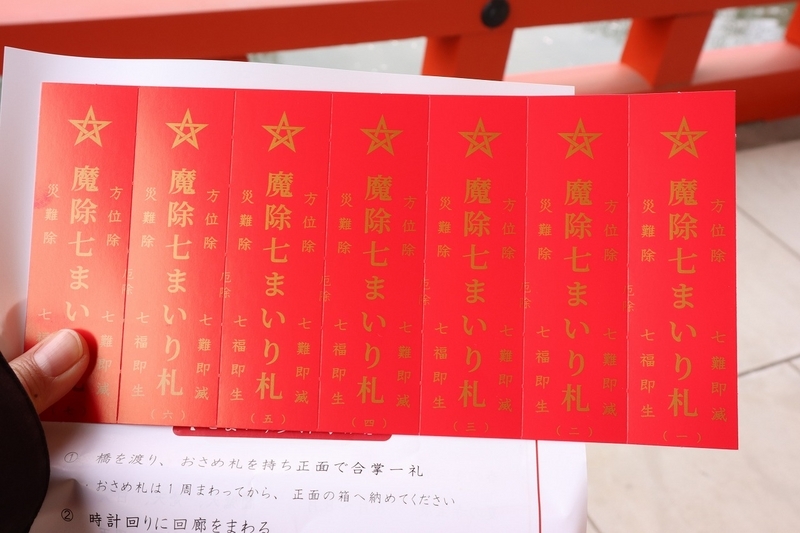 方位除 七難即滅
魔除七まいり札
災難除 七福即生
厄除
（一）
方位除 七難即滅
魔除七まいり札
災難除 七福即生
厄除
（二）
方位除 七難即滅
魔除七まいり札
災難除 七福即生
厄除
（三）
方位除 七難即滅
魔除七まいり札
災難除 七福即生
厄除
（四）
方位除 七難即滅
魔除七まいり札
災難除 七福即生
（五）
方位除 七難即滅
魔除七まいり札
災難除 七福即生
厄除
（六）
方位除 七難即滅
魔除七まい
災難除 七
① 橋を渡り、おさめ札を持ち正面で合掌一礼
・おさめ札は1周まわってから、正面の箱へ納めてください
② 時計回りに回廊をまわる